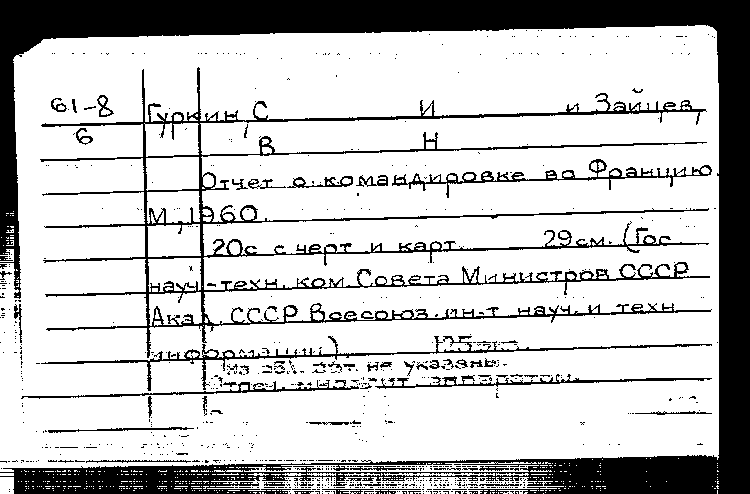 61-8 Гуркин, С И и Зайцев,
6 В Н
Отчет о командировке во Францию.
М, 1960.
20с с черт и карт. 29см. (Гос
науч-техн. ком. Совета Министров СССР
Акад. СССР Всесоюз. ин-т науч. и техн
информации). 125экз.
На обл. авт. не указаны.
Отпеч. множит аппаратом.